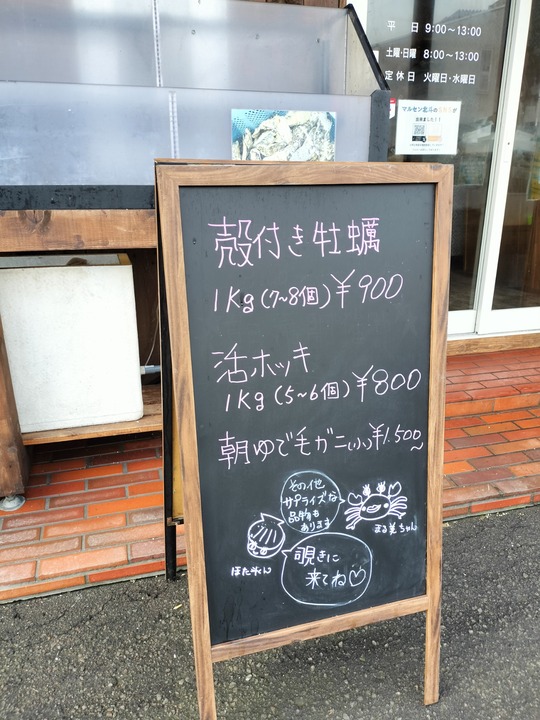 平　日 9:00～13:00
土曜・日曜 8:00～13:00
定休日 火曜日・水曜日
マルセン北斗の
出来ました！！
殻付き牡蠣
1Kg(7~8個)¥900
活ホッキ
1Kg(5~6個)¥800
朝ゆで毛ガニ(小)¥1.500~
その他
サプライズな
品物も
あります
まる美ちゃん
ほたれん
覗きに
来てね♡